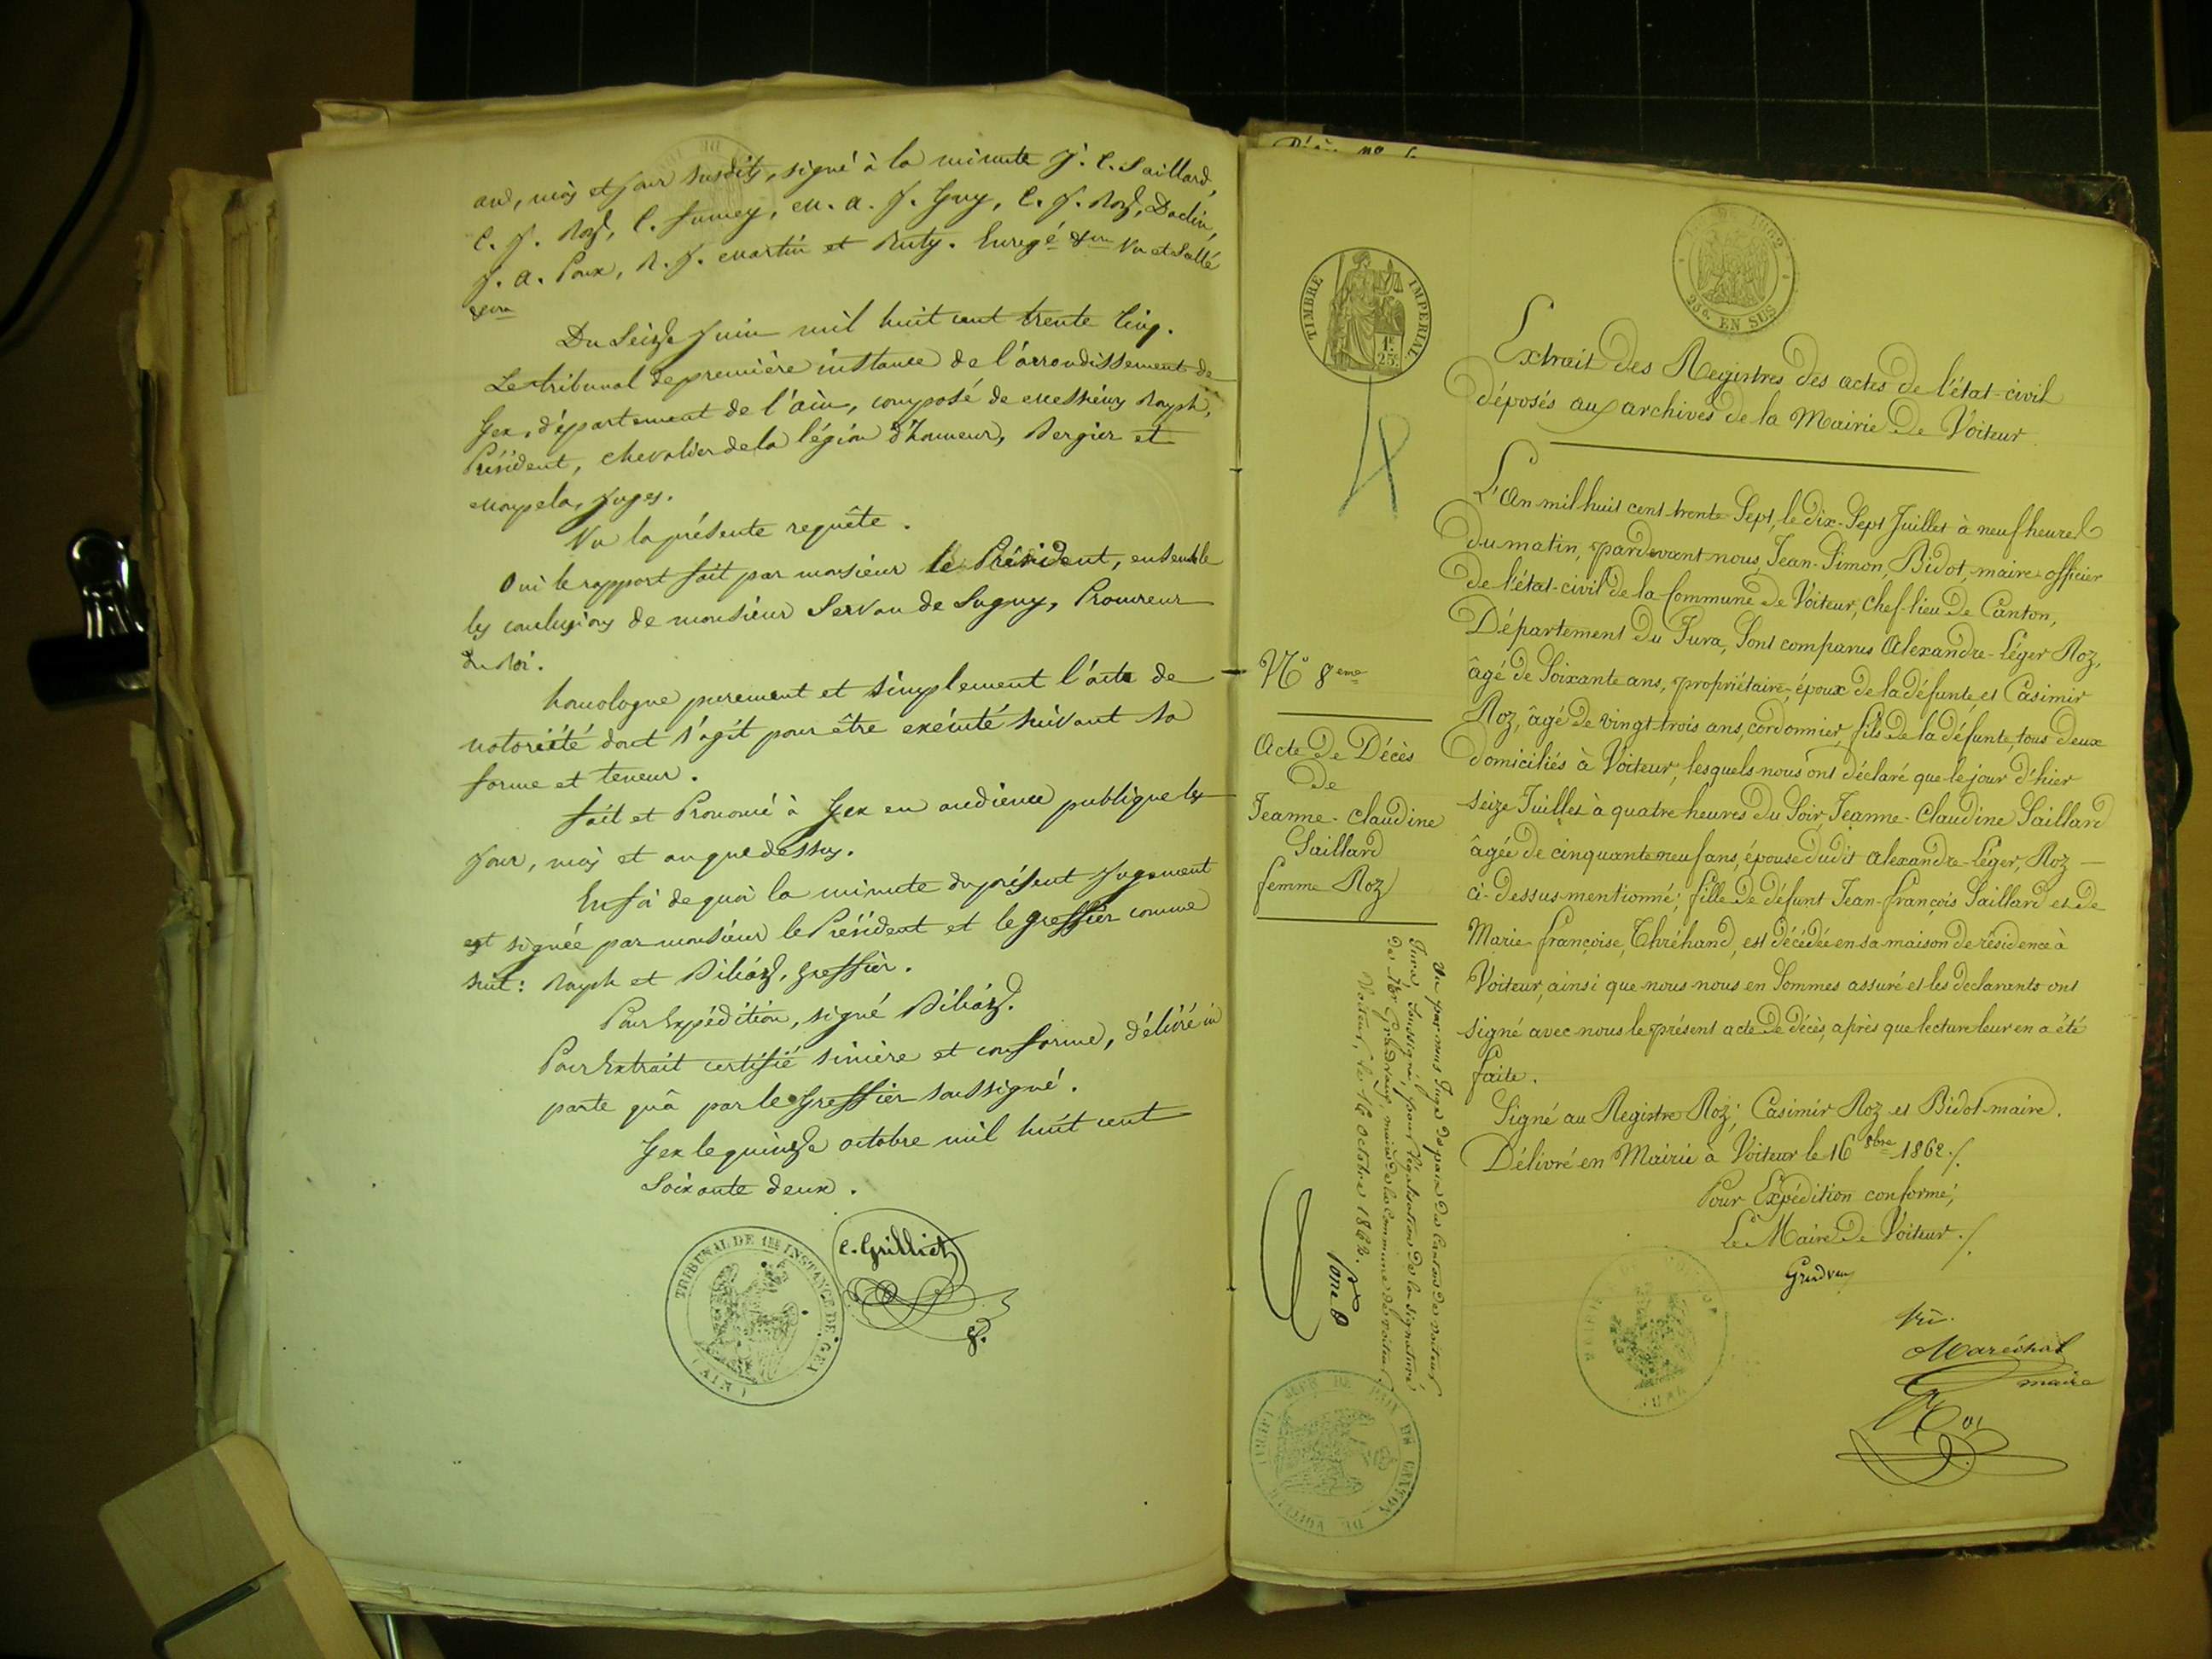 an, mois et jour susdits, signé à la minute J. C. Saillard,
C. J. Roz, C. Fumey, M. A. J. Guy, C. J. Roz, Daclin,
J. A. Poux, R. J. Martin et Ruty. Enregé &ra Vu et Scellé
&ra
Du Seize Juin mil huit cent trente Cinq.
Le tribunal de première instance de l'arrondissement de
Gex, département de l'ain, composé de Messieurs
Président, chevalier de la légion d'honneur, Bergier et
juges.
Vu la présente requête.
Oui le rapport fait par monsieur le Président, ensemble
les conclusions de monsieur Servan de Sugny, Procureur
du Roi.
homologue purement et simplement l'acte de
notoriété dont s'agit pour être exécuté suivant sa
forme et teneur.
fait et Prononcé à Gex en audience publique les
jour, mois et an que dessus.
En foi de quoi la minute du présent Jugement
est signée par monsieur le Président et le greffier comme
suit: et greffier.
Pour Expédition, signé
Pour Extrait certifié sincère et conforme, délivré
parte quâ par le Greffier soussigné.
Gex le quinze octobre mil huit cent
Soixante deux.
C. Grilliet
TRIBUNAL DE 1RE INSTANCE DE GEX
(AIN)
TIMBRE IMPERIAL
1F
25C
DE 1862
25c. EN SUS
Extrait des Registres des actes de l'état-civil
déposés aux archives de la Mairie de Voiteur
L'An mil huit cent trente Sept, le dix-Sept Juillet à neuf heures
du matin, pardevant nous, Jean-Simon, Bidot, maire officier
de l'état-civil de la Commune de Voiteur, Chef-lieu de Canton,
Département du Jura, Sont comparus Alexandre-Léger Roz,
âgé de Soixante ans, propriétaire, époux de la défunte, et Casimir
Roz, âgé de vingt-trois ans, cordonnier, fils de la défunte, tous deux
domiciliés à Voiteur, lesquels nous ont déclaré que le jour d'hier
seize Juillet à quatre heures du Soir, Jeanne-Claudine Saillard
âgée de cinquante neuf ans, épouse dudit Alexandre-Léger, Roz —
ci-dessus mentionné; fille de défunt Jean-François Saillard et de
Marie-Françoise, Thréhand, est décédée en sa maison de résidence à
Voiteur, ainsi que nous nous en Sommes assuré et les declarants ont
signé avec nous le présent acte de décès, après que lecture leur en a été
faite.
Signé au Registre Roz; Casimir Roz et Bidot maire.
Délivré en Mairie à Voiteur le 16 8bre 1862./.
Pour Expédition conforme;
Le Maire de Voiteur./.
Vu.
Maréchal
maire
Roz
N° 8eme
Acte de Décès
de
Jeanne-Claudine
Saillard
femme Roz
Vu par nous Juge de paix du Canton de voiteur
Jura, Soussigné, pour légalisation de la signature
de Mr maire de la Commune de voiteur
Voiteur, le 16 octobre 1862.
JUGE DE PAIX DU CANTON DE VOITEUR (JURA)